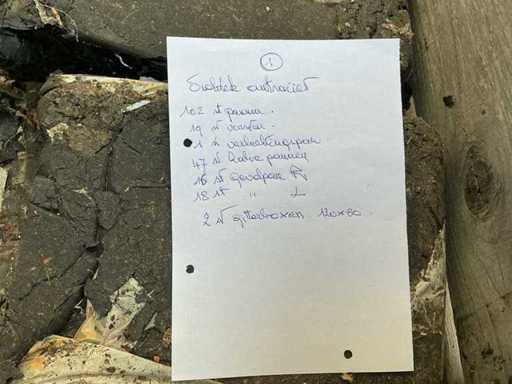 1
antraciet
102 st pannen.
19 st vorsten.
1 st
47 st halve pannen
16 st gevelpan R
18 st " L
2 st 120x80